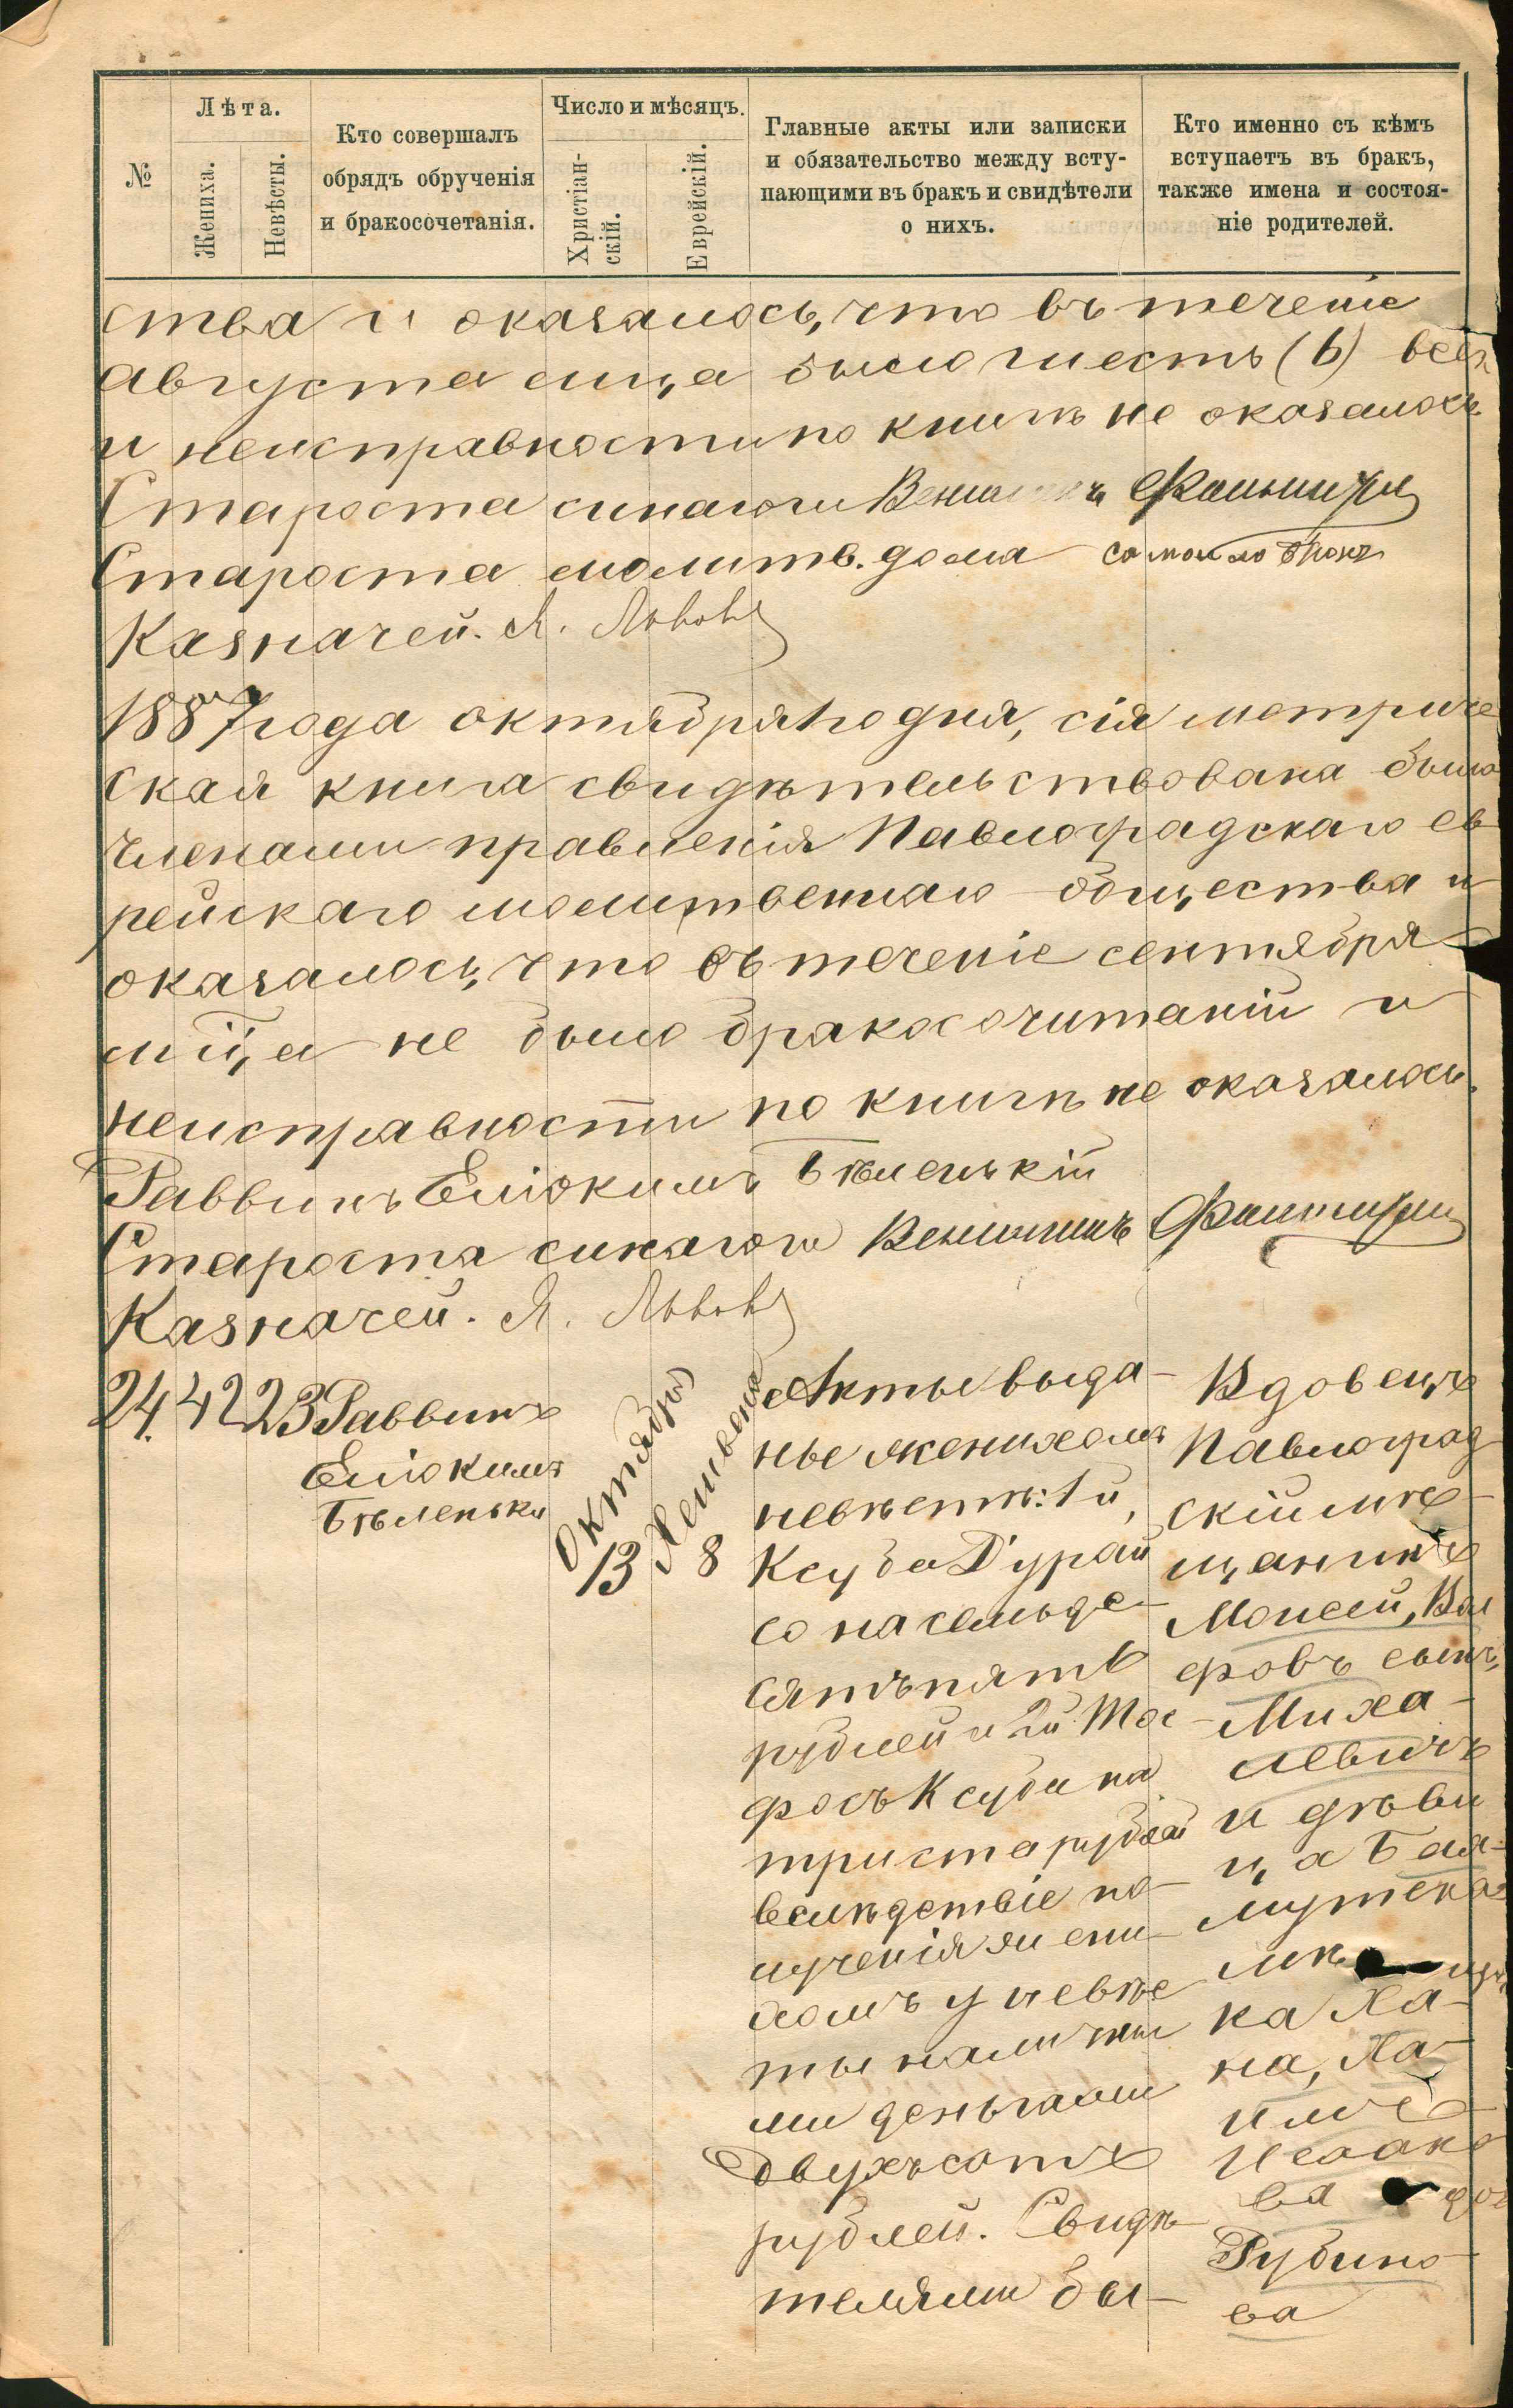 №
Лѣта.
Жениха.
Невѣсты.
Кто совершалъ
обрядъ обрученія
и бракосочетанія.
Число и мѣсяцъ.
Христіан-
скій.
Еврейскій.
Главные акты или записки
и обязательство между всту-
пающими въ бракъ и свидѣтели
о нихъ.
Кто именно съ кѣмъ
вступаетъ въ бракъ,
также имена и состоя-
ніе родителей.
ства и оказалось, что въ теченіе
августа мца было шесть (6)
и неисправности по книгѣ не оказалось.
Староста синагоги
Староста молитв. дома
Казначей. Я. Львовъ
1887 года октября 1го дня, сія метриче
ская книга свидѣтельствована была
членами правленія Павлоградскаго ев
рейскаго молитвеннаго общества и
оказалось, что въ теченіе сентября
мца не было бракосочитаній и
неисправности по книгѣ не оказалось.
Раввинъ Еліокимъ Бѣленькій
Староста синагоги Веніаминъ
Казначей. Я. Львовъ
24. 42 23 Раввинъ
Еліокимъ
Бѣленькі
Октября
13
Хешвена
8
Акты выда-
ные женихомъ
невѣстѣ: 1й,
Ксуба Дурай
со на семьде-
сятъ пять
рублей и 2й Тос-
фосъ Ксуби на
триста рублей
вслѣдствіе по-
лученія жени-
хомъ у невѣс
ты наличны
ми деньгами
двухъ сотъ
рублей. Свидѣ
телями бы-
Вдовецъ
Павлоград
скій мѣ-
щанинъ
Моисей, Вол
фовъ сынъ,
Миха-
левичъ
и дѣви
ца
ка Ха-
на, Ха-
имъ
Исаако
ва
Рубино-
ва